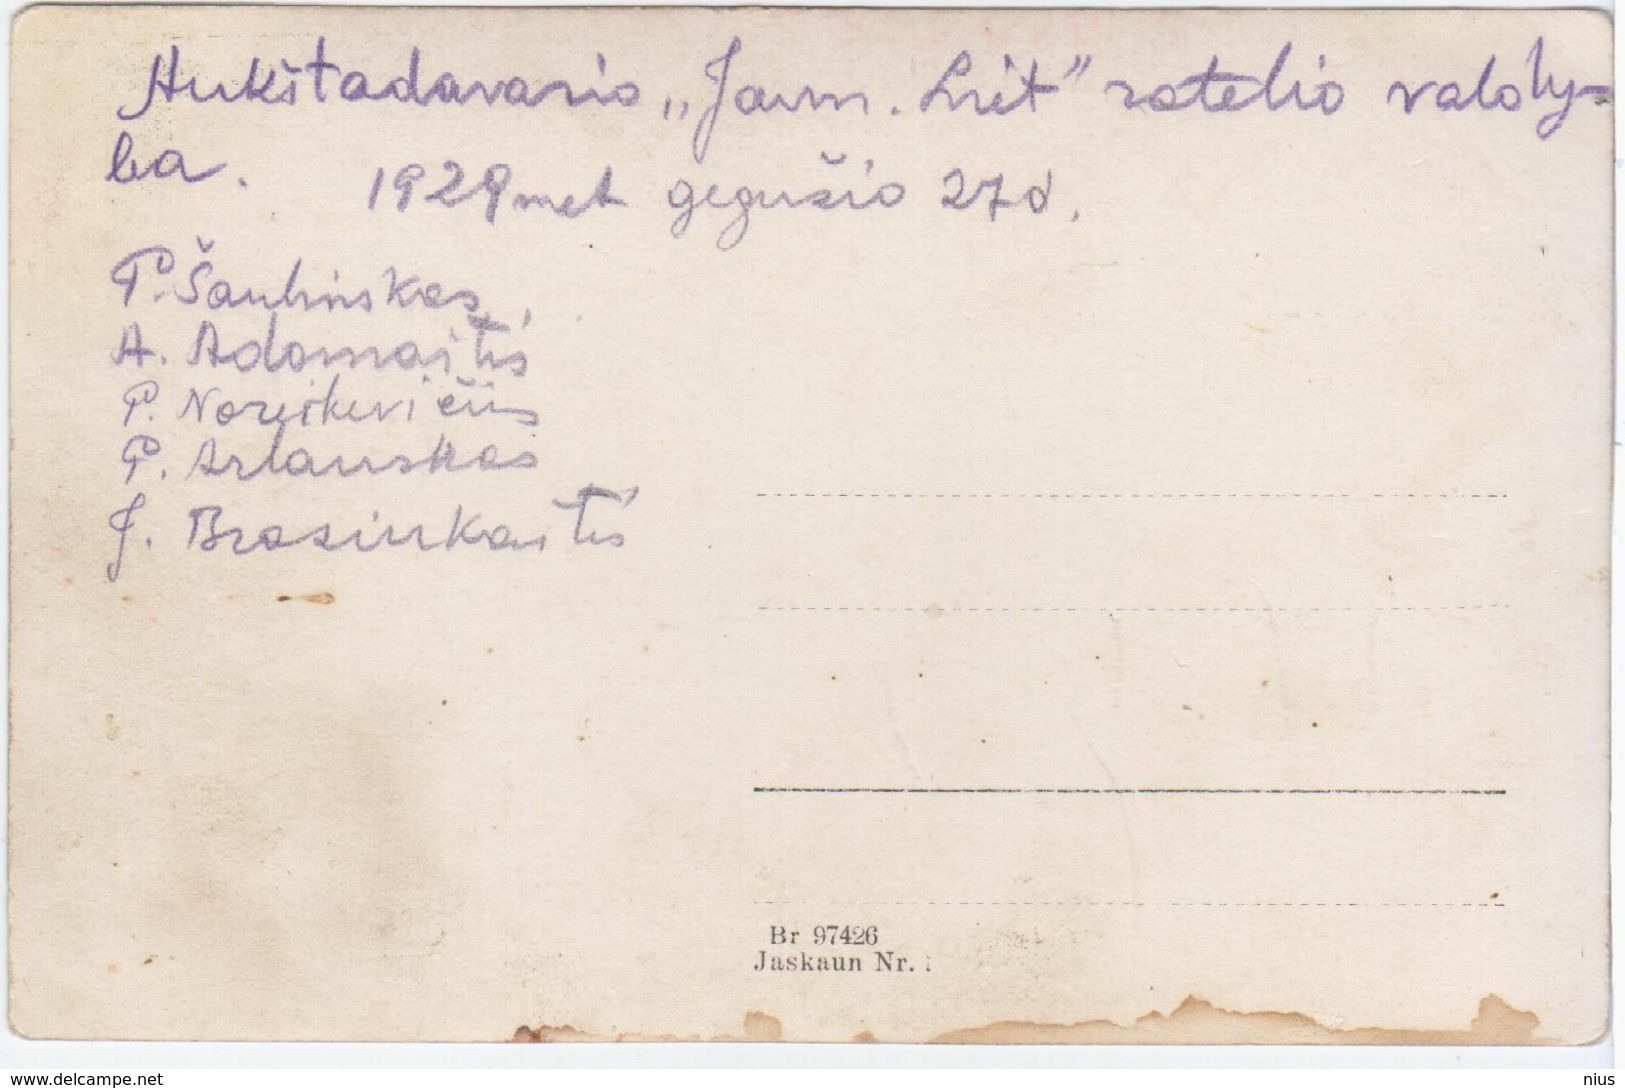 Aukštadavario „Jaun. Liet” ratelio valdy-
ba. 1929 met gegužio 27 d.
P. Šaulinskas
A. Adomaitis
P. Noreikevičius
P. Arlauskas
J. Brasiunkaitis
Br 97426
Jaskaun Nr.
www.delcampe.net
nius